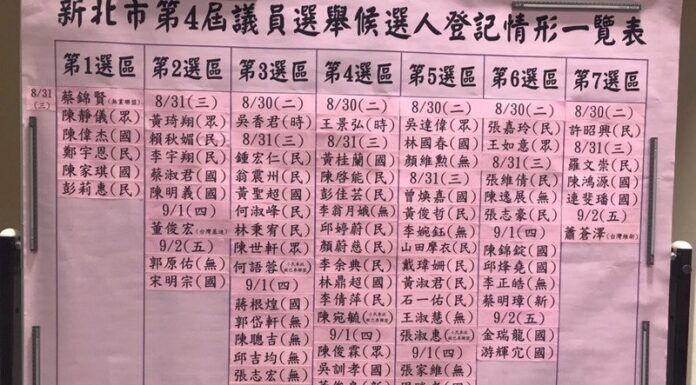 新北市第4屆議員選舉候選人登記情形一覽表
第1選區
8/31
(三)
蔡錦賢(無黨聯盟)
陳靜儀(眾)
陳偉杰(國)
鄭宇恩(民)
陳家琪(民)
彭莉惠(民)
第2選區
8/31(三)
黃琦翔(眾)
賴秋媚(民)
李宇翔(民)
蔡淑君(國)
陳明義(國)
9/1(四)
董俊宏(台灣基進)
9/2(五)
郭原佑(無)
宋明宗(國)
第3選區
8/30(二)
吳香君(時)
8/31(三)
鍾宏仁(民)
翁震州(民)
黃聖超(國)
何淑峰(民)
林秉宥(民)
陳世軒(眾)
何語蓉
9/1(四)
蔣根煌(國)
郭岱軒(無)
陳聰吉(無)
邱吉均(無)
張志宏(無)
第4選區
8/30(二)
王景弘(時)
8/31(三)
黃桂蘭(國)
陳啓能(民)
彭佳芸(民)
李翁月娥(無)
邱婷蔚(民)
顏蔚慈(民)
李余典(民)
林鼎超(國)
李倩萍(民)
陳宛毓
9/1(四)
陳俊霖(眾)
吳訓孝(國)
第5選區
8/30(二)
吳達偉(眾)
林國春(國)
顏維勳(無)
8/31(三)
曾煥嘉(國)
黃俊哲(民)
李婉鈺(無)
山田摩衣(民)
戴瑋姍(民)
黃淑君(民)
石一佑(民)
王淑慧(民)
張淑惠
9/1(四)
張家維(無)
第6選區
8/30(二)
張嘉玲(民)
王如意(眾)
8/31(三)
張維倩(民)
陳逸展(無)
張志豪(民)
9/1(四)
陳錦錠(國)
邱烽堯(國)
李正皓(無)
蔡明璋(新)
9/2(五)
金瑞龍(國)
游輝宂(國)
第7選區
8/30(二)
許昭興(民)
8/31(三)
羅文崇(民)
陳鴻源(國)
連斐璠(國)
9/2(五)
蕭蒼澤(台灣維新)